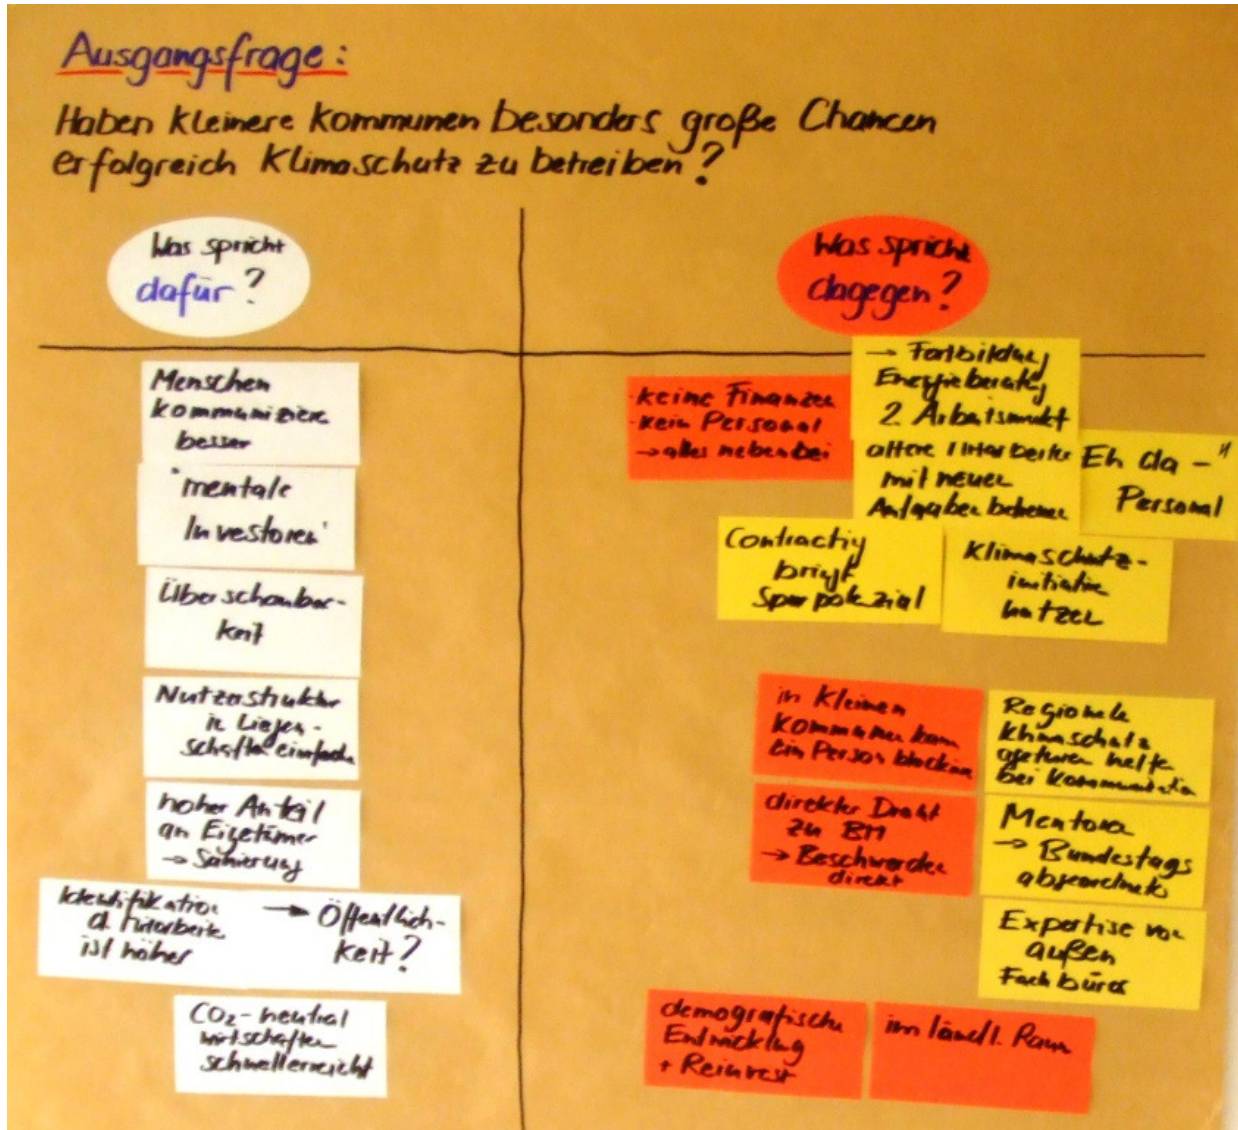 Ausgangsfrage:
Haben kleinere Kommunen besonders große Chancen
erfolgreich Klimaschutz zu betreiben?
Was spricht
dafür?
Menschen
kommunizieren
besser
"mentale
Investoren"
Überschaubar-
keit
Nutzerstruktur
in Liegen-
schaften einfacher
hoher Anteil
an Eigetümer
→ Sanierung
Identifikation
d. Mitarbeiter
ist höher
→ Öffentlich-
keit?
CO₂-neutral
wirtschaften
schnell erreicht
Was spricht
dagegen?
· keine Finanzen
· kein Personal
→ alles nebenbei
→ Fortbildung
Energieberatung
2. Arbeitsmarkt
ältere Mitarbeiter
mit neuen
Aufgaben betreuen
Eh da-"
Personal
Contracting
bringt
Sparpotenzial
Klimaschutz-
initiative
nutzen
in kleinen
Kommunen kann
ein Person blockieren
Regionale
Klimaschutz
agenturen helfen
bei Kommunikation
direkter Draht
zu BM
→ Beschwerden
direkt
Mentoren
→ Bundestags
abgeordnete
Expertise von
außen
Fachbüros
demografische
Entwicklung
+ Reinvest
im ländl. Raum